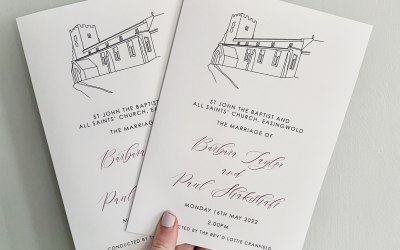 ST JOHN THE BAPTIST AND
ALL SAINTS' CHURCH, EASINGWOLD
THE MARRIAGE OF
Barbara
Paul
CONDUCTED BY TH
ST JOHN THE BAPTIST AND
ALL SAINTS' CHURCH, EASINGWOLD
THE MARRIAGE OF
Barbara Taylor
and
Paul
MONDAY 16TH MAY 2022
2.00PM
CONDUCTED BY THE REV'D LOTTIE CRANFIELD